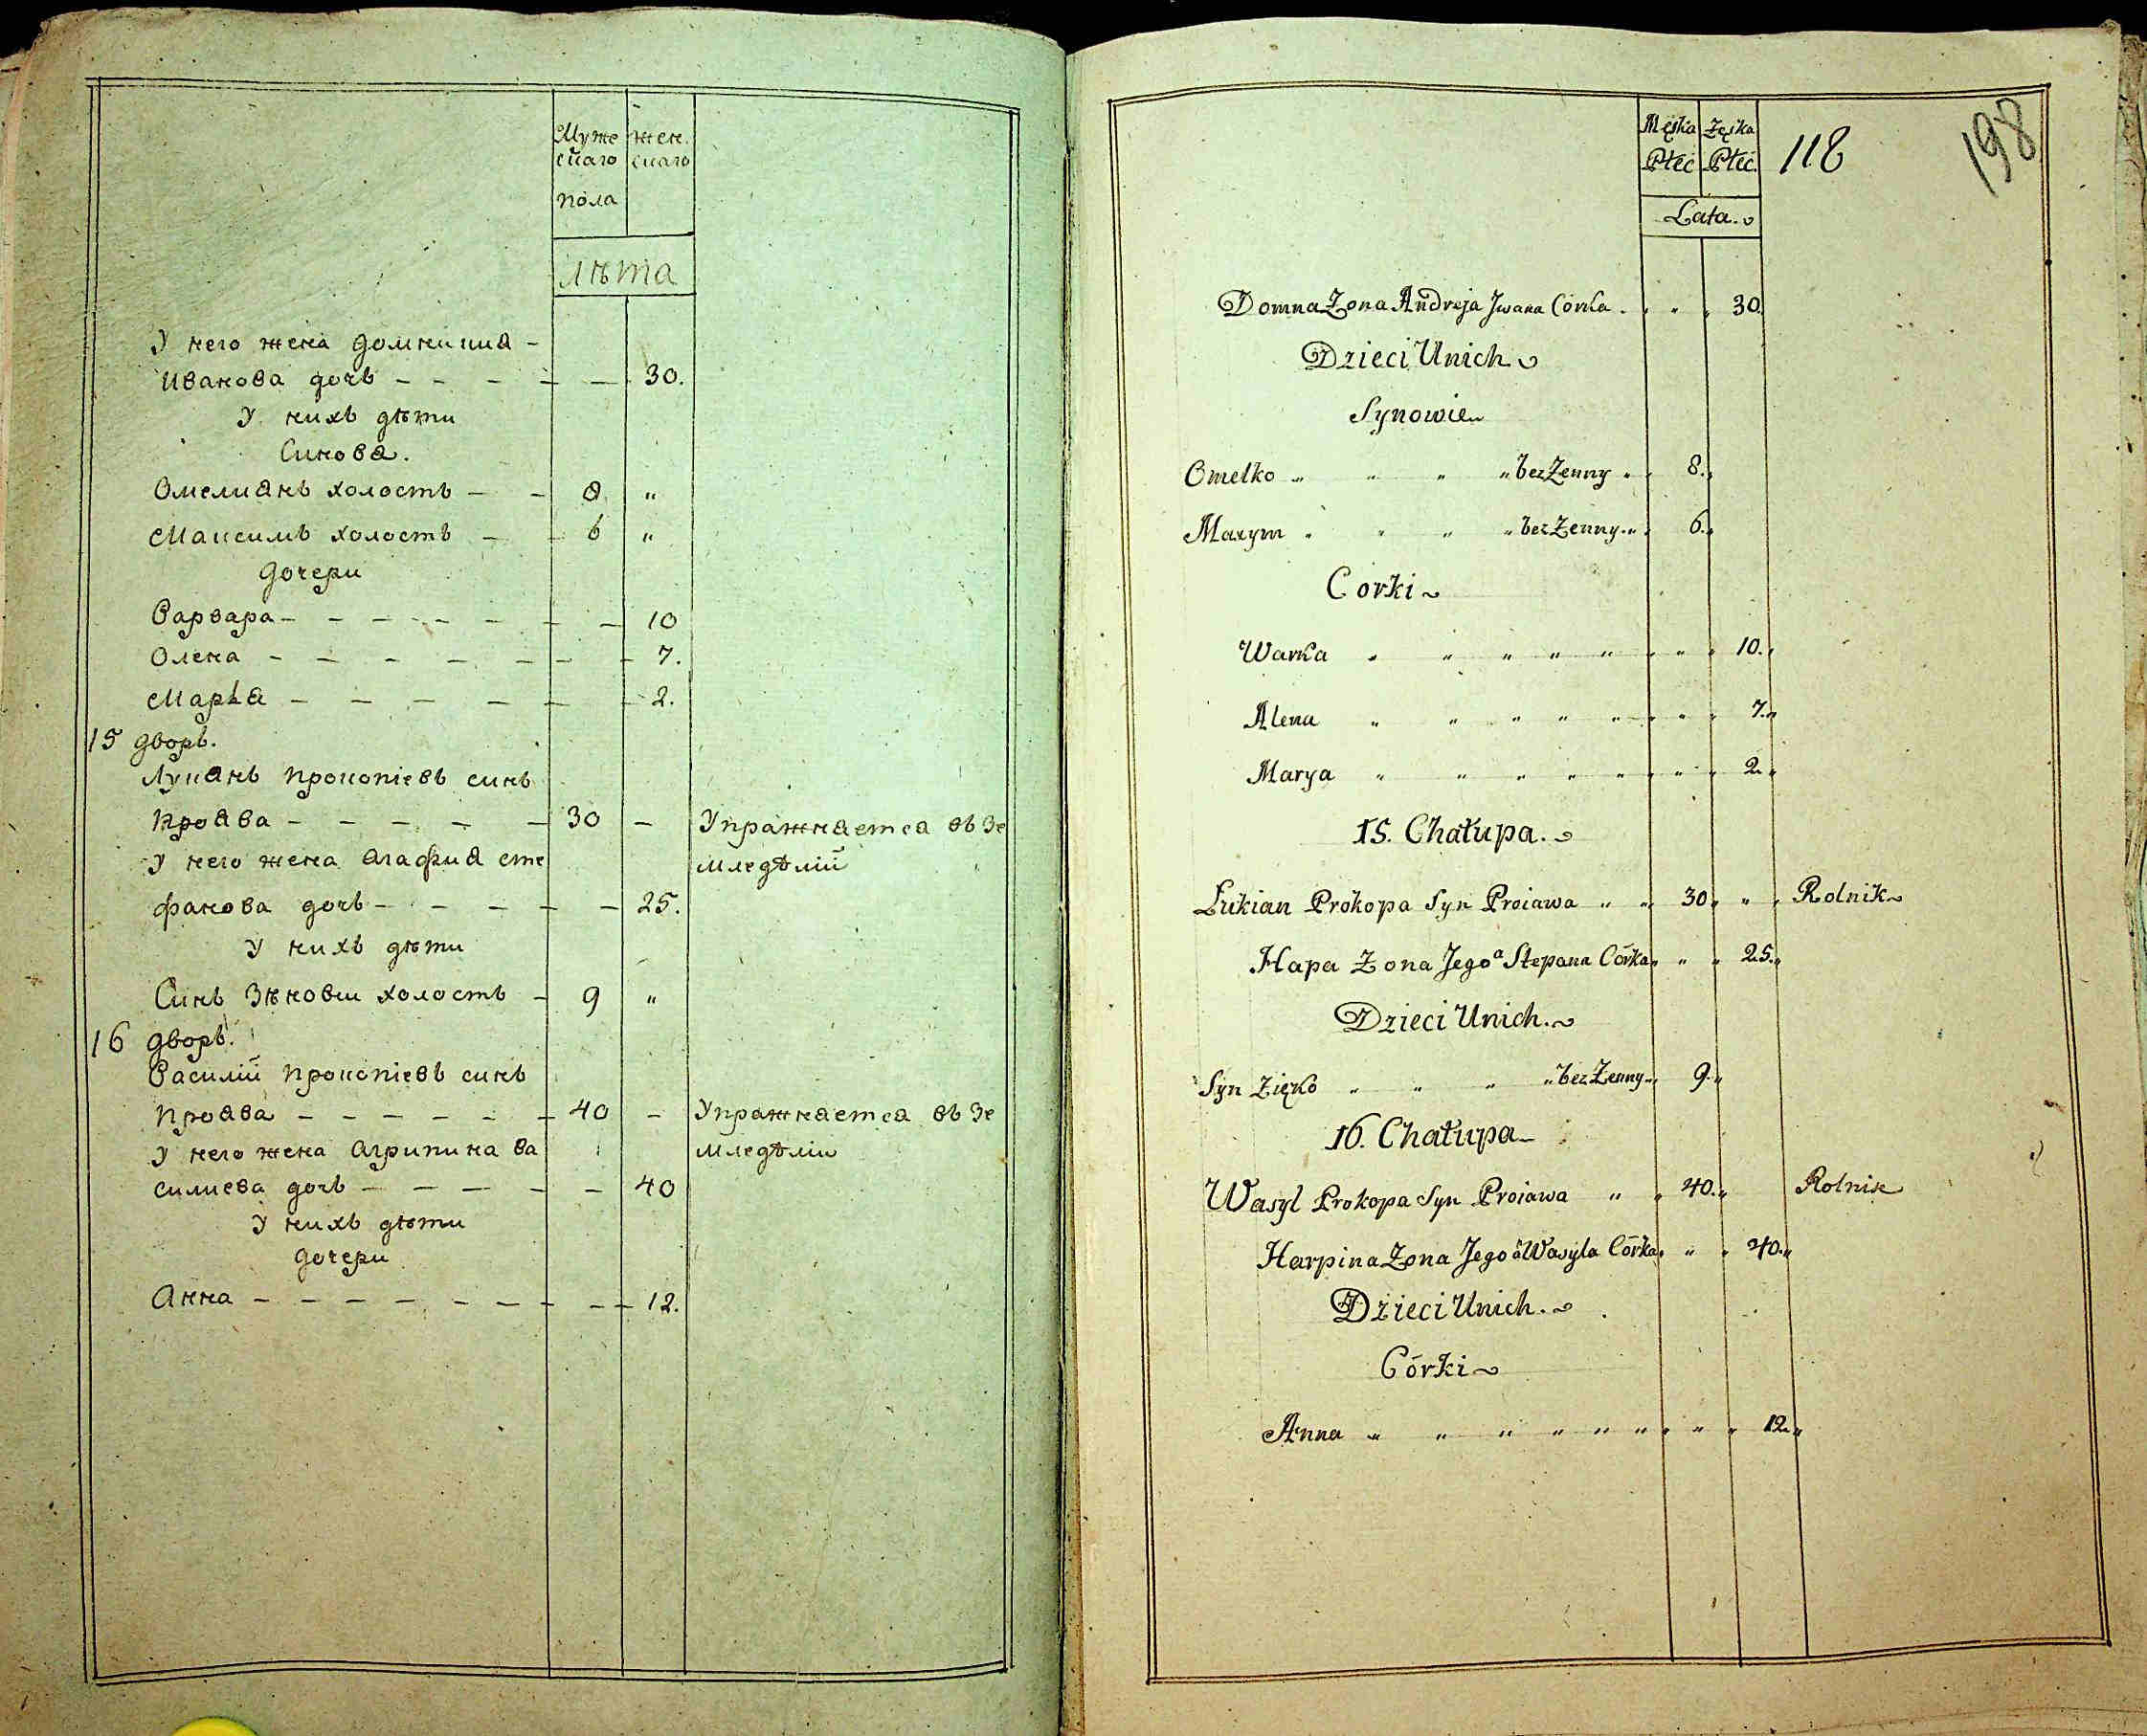 Муже жен.
скаго скаго
пола
лѣта
У него жена домникиа -
Иванова дочь - - - - - 30.
У нихъ дѣти
Синова.
Омелианъ холостъ - - 8 "
Максимъ холостъ - - 6 "
дочери
Варвара - - - - - - - - 10
Олена - - - - - - - 7.
Марьа - - - - - - 2.
15 дворъ.
Лукианъ Прокопіевъ синъ
Проава - - - - - 30 - Упражнаетса въ Зе
У него жена Агафиа сте мледѣлій
фанова дочь - - - - - - 25.
У нихъ дѣти
Синъ Зѣновии холостъ - 9 "
16 дворъ.
Василій Прокопіевъ синъ
Проава - - - - - - 40 - Упражнаетса въ Зе
У него жена Агрипина Ва мледѣліи
силиева дочь - - - - - 40
У нихъ дѣти
дочери
Анна - - - - - - - - - 12.
Męska Zęska 118 198
Płeć Płeć.
Lata.
Domna Zona Andreja Jwana Corka . " " " 30.
Dzieci Unich
Synowie
Omelko " " " " bez Zenny " " 8."
Maxym " " " " bez Zenny " " 6."
Corki
Warka " " " " " " " " 10."
Alena " " " " " " " " 7."
Marya " " " " " " " " 2."
15. Chałupa.
Łukian Prokopa Syn Proiawa " " 30 " " " Rolnik
Hapa Zona Jego a Stepana Córka " " " 25."
Dzieci Unich.
Syn Zięko " " " " bez Zenny " 9."
16. Chałupa
Wasyl Prokopa Syn Proiawa " " 40." Rolnik
Harpina Zona Jego a Wasyla Córka " " " 40."
Dzieci Unich.
Córki
Anna " " " " " " " " " 12."